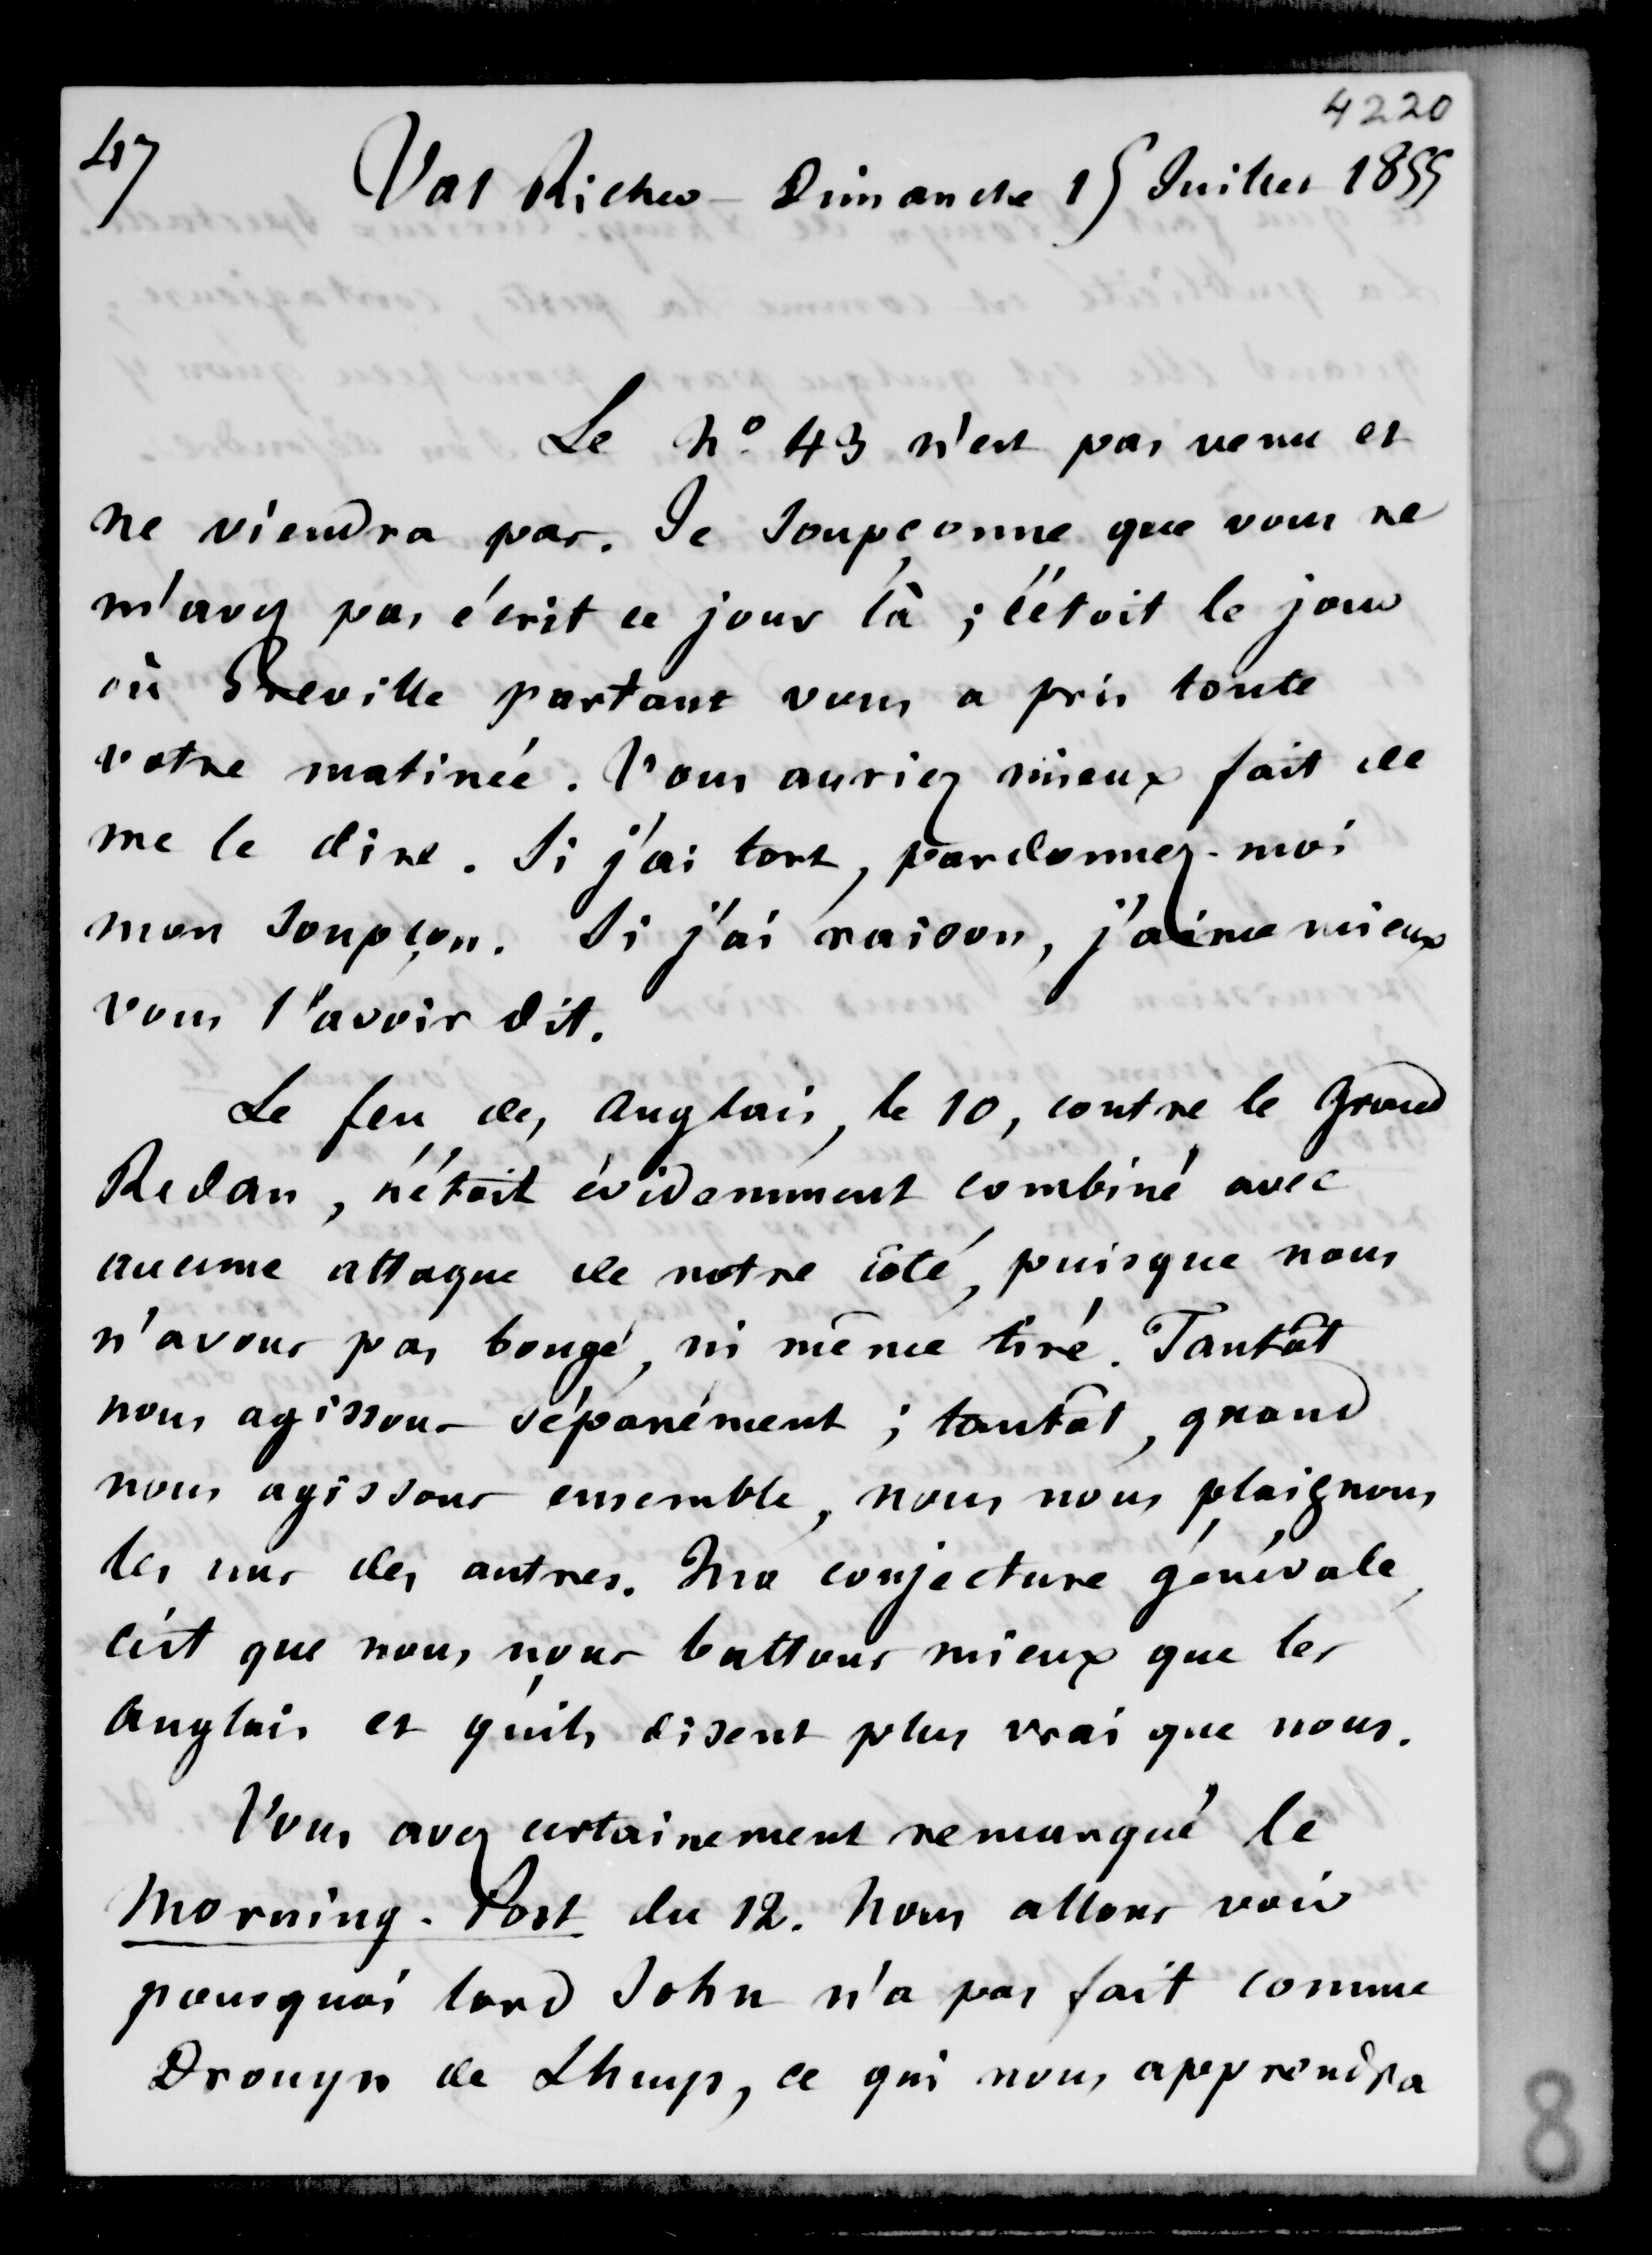 4220
47
Val Richer - Dimanche 15 Juillet 1855
Le no. 43 n'est pas venu et
ne viendra pas. Je soupçonne que vous ne
m'avez pas écrit ce jour là ; c'étoit le jour
où Greville partant vous a pris toute
votre matinée. Vous auriez mieux fait de
me le dire. Si j'ai tort, pardonnez-moi
mon soupçon. Si j'ai raison, j'aime mieux
vous l'avoir dit.
Le feu des Anglais, le 10, contre le grand
Redan, n'étoit évidemment combiné avec
aucune attaque de notre côté, puisque nous
n'avons pas bougé, ni même tiré. Tantôt
nous agissons séparément ; tantôt, quand
nous agissons ensemble, nous nous plaignons
les uns des autres. Ma conjecture générale,
c'est que nous nous battons mieux que les
Anglais et qu'ils disent plus vrai que nous.
Vous avez certainement remarqué le
Morning-Post du 12. Nous allons voir
pourquoi lord John n'a pas fait comme
Drouyn de Lhuys, ce qui nous apprendra
8